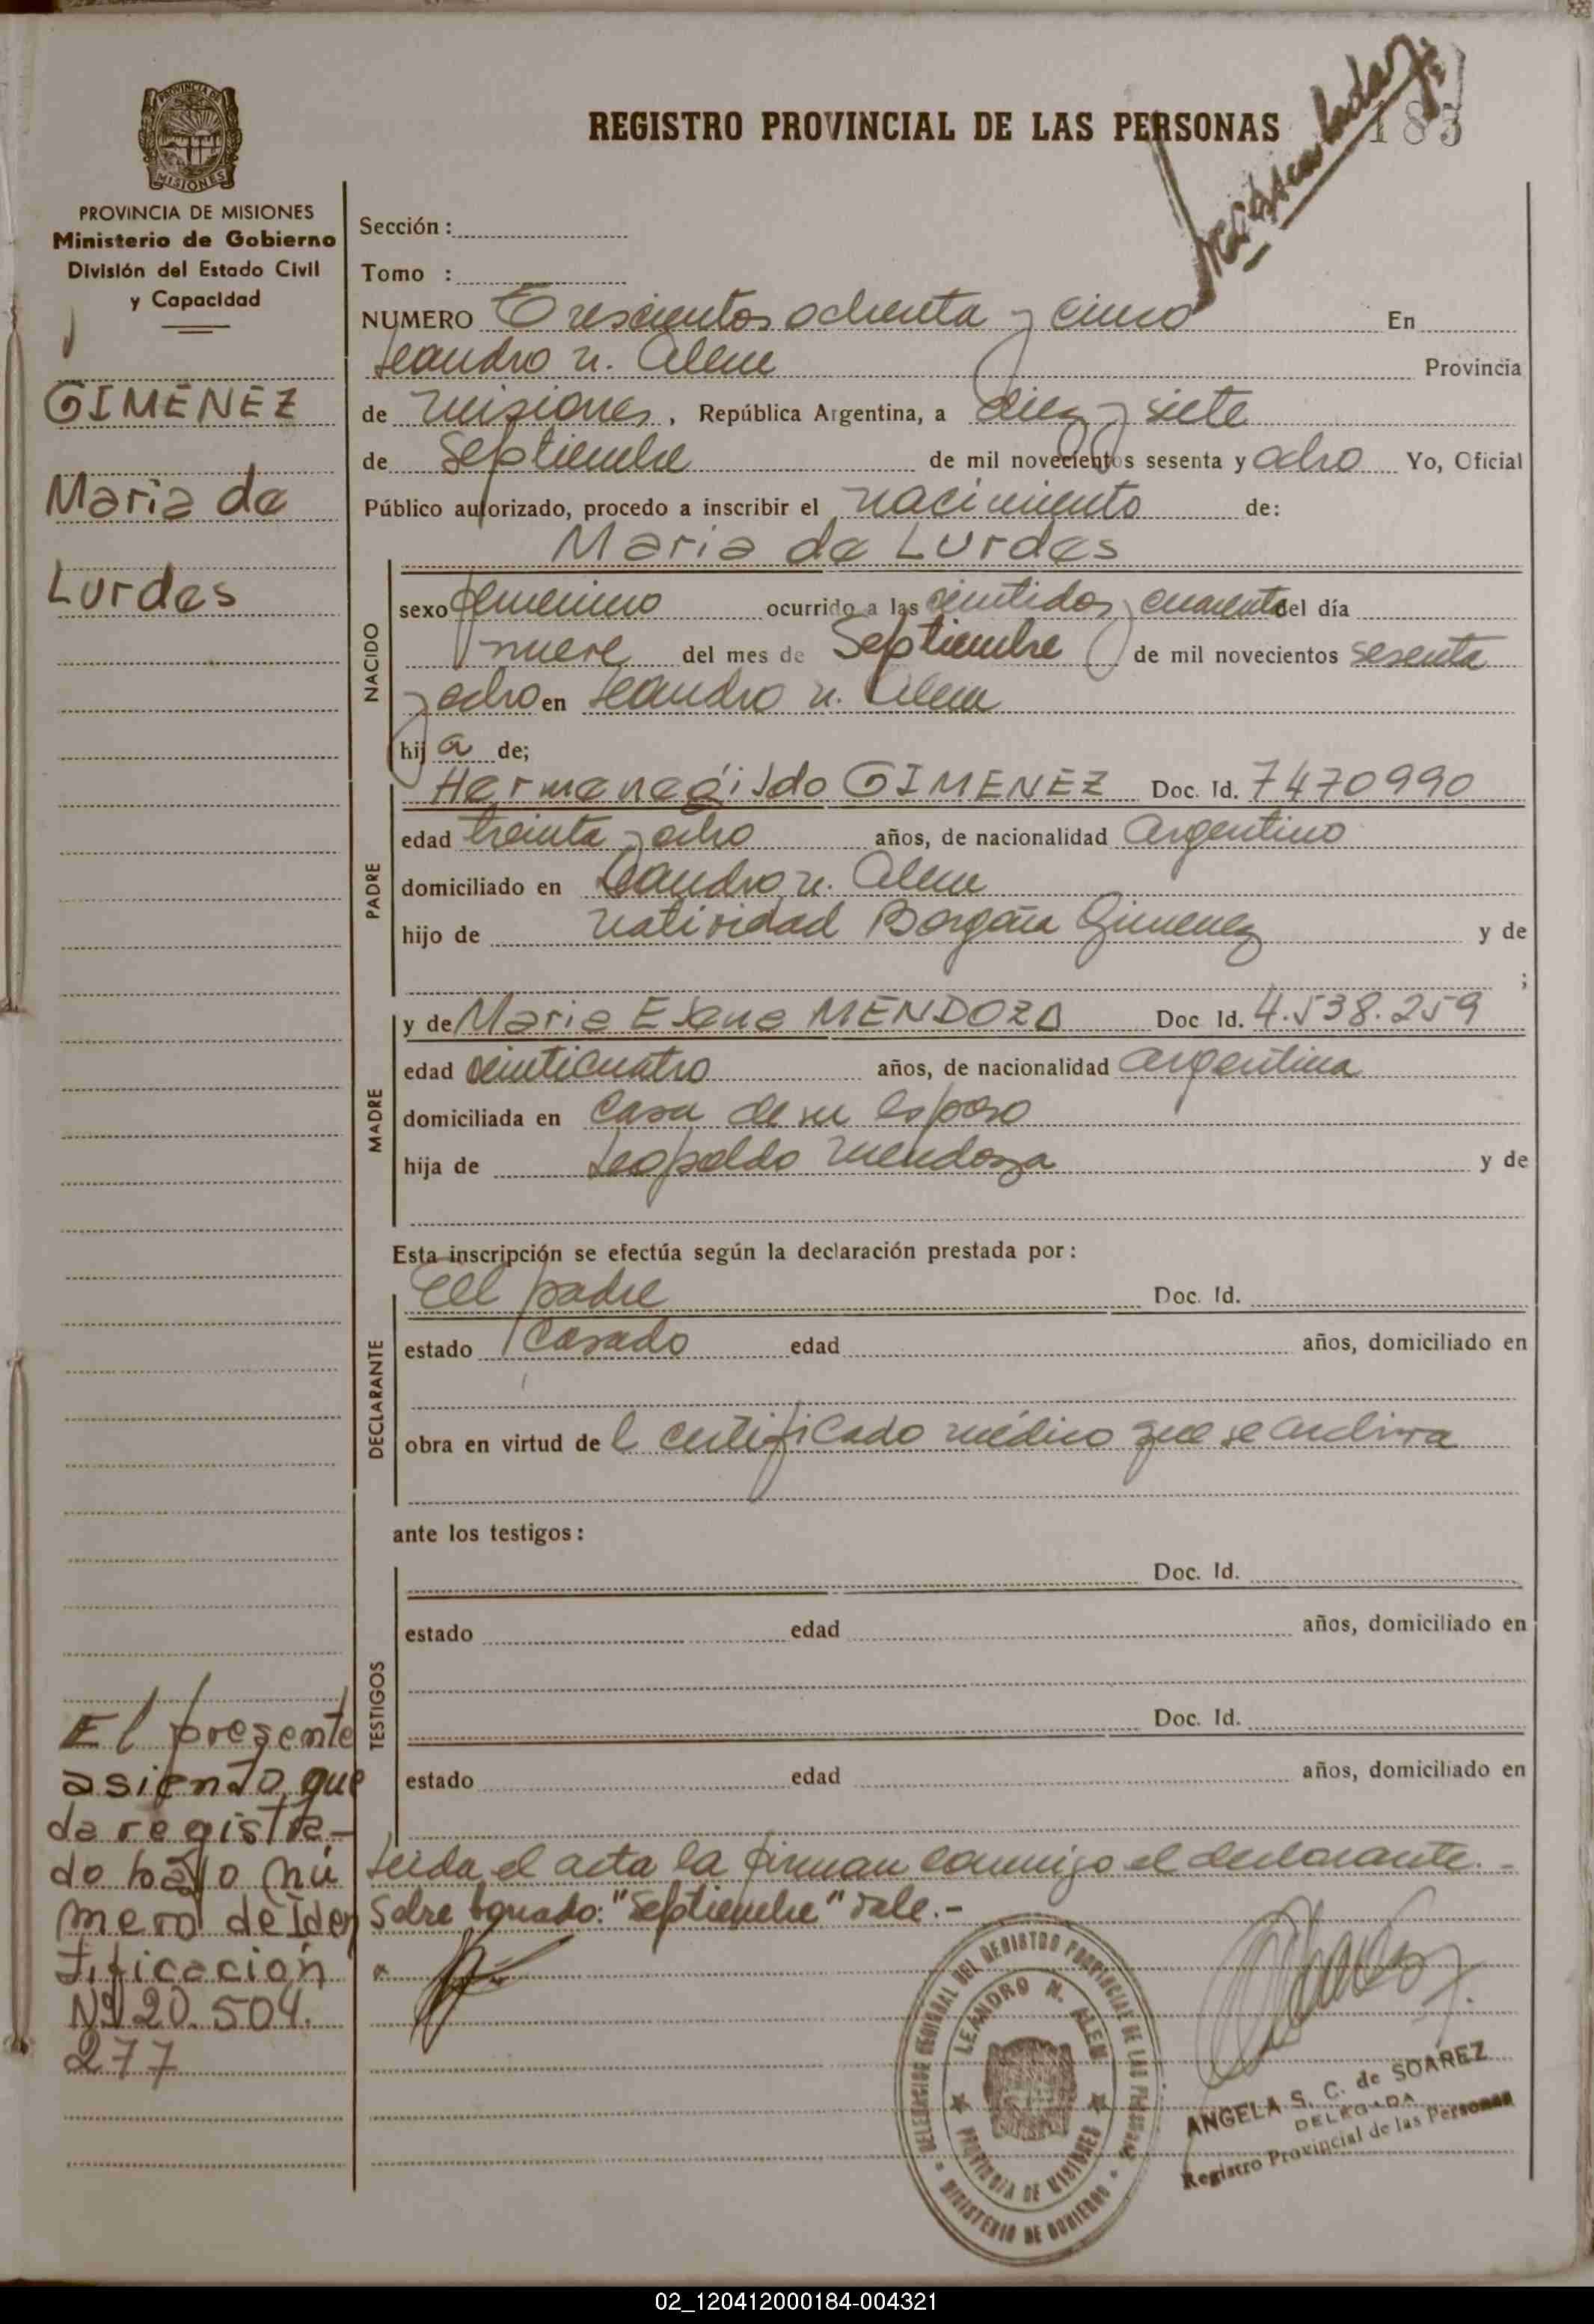 REGISTRO PROVINCIAL DE LAS PERSONAS
183
PROVINCIA DE MISIONES
Ministerio de Gobierno
División del Estado Civil
y Capacidad
GIMENEZ
Maria de
Lurdes
El presente
asiento que
da registra-
do bajo nú
mero de Iden
tificación
Nº 20.504.
277
Sección :
Tomo :
NUMERO Trescientos ochenta y cinco En
Leandro N. Alem Provincia
de Misiones, República Argentina, a diez y siete
de Septiembre de mil novecientos sesenta y ocho Yo, Oficial
Público autorizado, procedo a inscribir el nacimiento de:
Maria de Lurdes
NACIDO
sexo femenino ocurrido a las veintidos y cuarenta del día
nueve del mes de Septiembre de mil novecientos sesenta
y ocho en Leandro N. Alem
hija de;
PADRE
Hermenegildo GIMENEZ Doc. Id. 7470990
edad treinta y ocho años, de nacionalidad Argentino
domiciliado en Leandro N. Alem
hijo de Natividad Gimenez y de
;
MADRE
y de Maria Elena MENDOZA Doc Id. 4.538.259
edad veinticuatro años, de nacionalidad argentina
domiciliada en casa de su esposo
hija de Leopoldo Mendoza y de
Esta inscripción se efectúa según la declaración prestada por:
DECLARANTE
El padre Doc. Id.
estado Casado edad años, domiciliado en
obra en virtud del certificado médico que se archiva
ante los testigos:
TESTIGOS
Doc. Id.
estado edad años, domiciliado en
Doc. Id.
estado edad años, domiciliado en
Leida el acta la firman conmigo el declarante.-
Sobre borrado: "Septiembre" vale.-
DELEGACION REGIONAL DEL REGISTRO PROVINCIAL DE LAS PERSONAS
LEANDRO N. ALEM
PROVINCIA DE MISIONES
MINISTERIO DE GOBIERNO
ANGELA S. C. de SOAREZ
DELEGADA
Registro Provincial de las Personas
02_120412000184-004321